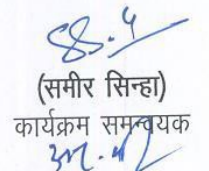 (समीर सिन्हा)
कार्यक्रम समन्वयक